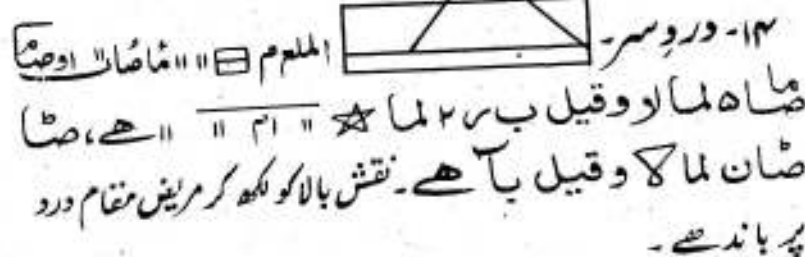 ۱۴- دردِ سر۔ الملعم م " " ماصاں " اوصما
صما ۵ لما لا وقیل ب س ۲ لما ☆ " ام " " ھے، صٹا
ضان لما لا وقیل بآ ھے۔ نقش بالا کو لکھ کر مریض مقام درد
پر باندھے۔